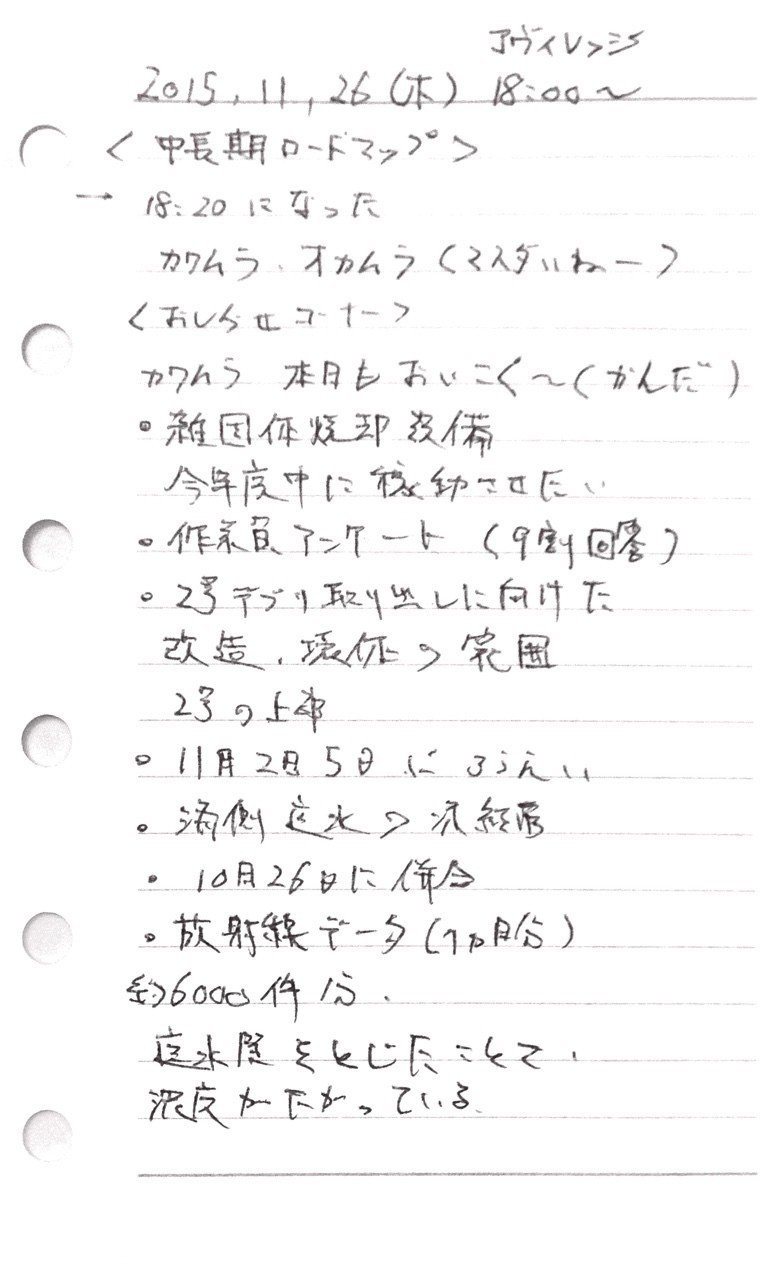 Jヴィレッジ
2015.11.26(木) 18:00〜
<中長期ロードマップ>
→ 18:20になった
カワムラ、オカムラ(マスダいねー)
<おしらせコーナー>
カワムラ 本日もおいこく〜(かんだ)
・雑固体焼却設備
今年度中に稼動させたい
・作業員アンケート(9割回答)
・2号デブリ取り出しに向けた
改造、環境の範囲
2号の上部
・11月2日5日にろうえい
・海側遮水の完結
・10月26日に併合
・放射線データ(1ヵ月分)
約6000件分.
遮水壁をとじたことで、
濃度がたがっている